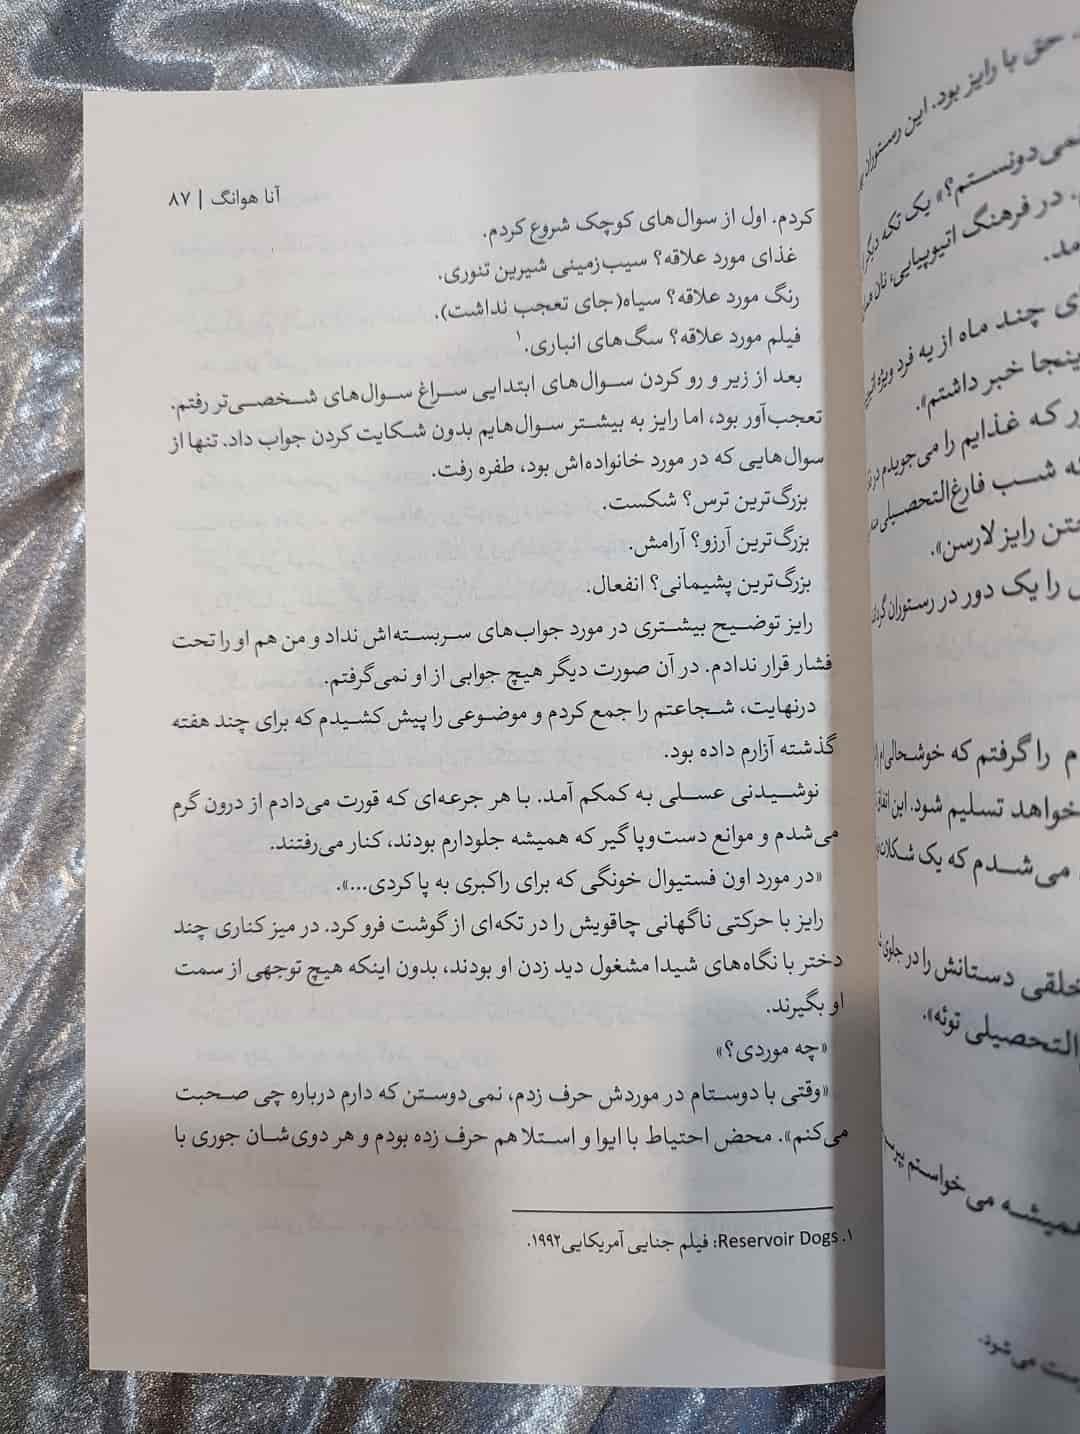 آنا هوانگ | ۸۷
کردم. اول از سوال‌های کوچک شروع کردم.
غذای مورد علاقه؟ سیب‌زمینی شیرین تنوری.
رنگ مورد علاقه؟ سیاه(جای تعجب نداشت).
فیلم مورد علاقه؟ سگ‌های انباری.۱
بعد از زیر و رو کردن سوال‌های ابتدایی سراغ سوال‌های شخصی‌تر رفتم.
تعجب‌آور بود، اما رایز به بیشتر سوال‌هایم بدون شکایت کردن جواب داد. تنها از
سوال‌هایی که در مورد خانواده‌اش بود، طفره رفت.
بزرگ‌ترین ترس؟ شکست.
بزرگ‌ترین آرزو؟ آرامش.
بزرگ‌ترین پشیمانی؟ انفعال.
رایز توضیح بیشتری در مورد جواب‌های سربسته‌اش نداد و من هم او را تحت
فشار قرار ندادم. در آن صورت دیگر هیچ جوابی از او نمی‌گرفتم.
درنهایت، شجاعتم را جمع کردم و موضوعی را پیش کشیدم که برای چند هفته
گذشته آزارم داده بود.
نوشیدنی عسلی به کمکم آمد. با هر جرعه‌ای که قورت می‌دادم از درون گرم
می‌شدم و موانع دست‌وپاگیر که همیشه جلودارم بودند، کنار می‌رفتند.
«در مورد اون فستیوال خونگی که برای راکبری به پا کردی...».
رایز با حرکتی ناگهانی چاقویش را در تکه‌ای از گوشت فرو کرد. در میز کناری چند
دختر با نگاه‌های شیدا مشغول دید زدن او بودند، بدون اینکه هیچ توجهی از سمت
او بگیرند.
«چه موردی؟»
«وقتی با دوستام در موردش حرف زدم، نمی‌دوستن که دارم درباره چی صحبت
می‌کنم». محض احتیاط با ایوا و استلا هم حرف زده بودم و هر دوی‌شان جوری با
۱. Reservoir Dogs: فیلم جنایی آمریکایی۱۹۹۲.
حق با رایز بود. این رستوران
نمی‌دونستم؟» یک تکه دیگر
در فرهنگ اتیوپیایی، نان
مد.
ی چند ماه از یه فرد ویژه
ینجا خبر داشتم».
ر که غذایم را می‌جویدم در
ه شب فارغ‌التحصیلی
ختن رایز لارسن».
را یک دور در رستوران
م را گرفتم که خوشحالی‌ام
خواهد تسلیم شود. این
می‌شدم که یک
خلقی دستانش را در جلوی
التحصیلی توئه».
همیشه می‌خواستم
ست می‌شود.